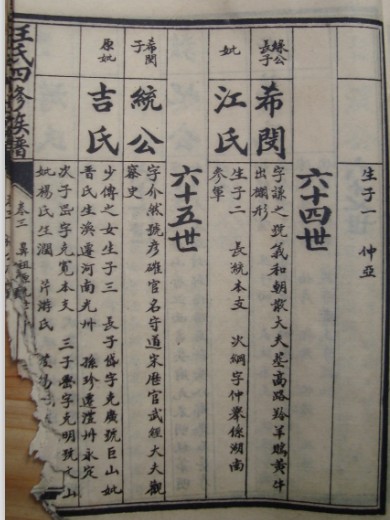 生子一 仲亞
六十四世
緣公長子
希閔
字謙之號義和朝散大夫墓高路羚羊鵰黃牛
出欄形
妣
江氏
生子二 長統本支 次綱字仲舉係湖南
參軍
六十五世
希閔子
統公
字介然號彥確官名守道宋歷官武經大夫觀
察史
原妣
吉氏
少傅之女生子三 長子岱字克廣號巨山妣
晉氏生渙遷河南光州 孫珍遷澧州永定
次子嵒字克寬本支 三子 字克明號 山
妣楊氏生瀾 芹游氏
汪氏四修族譜
卷三